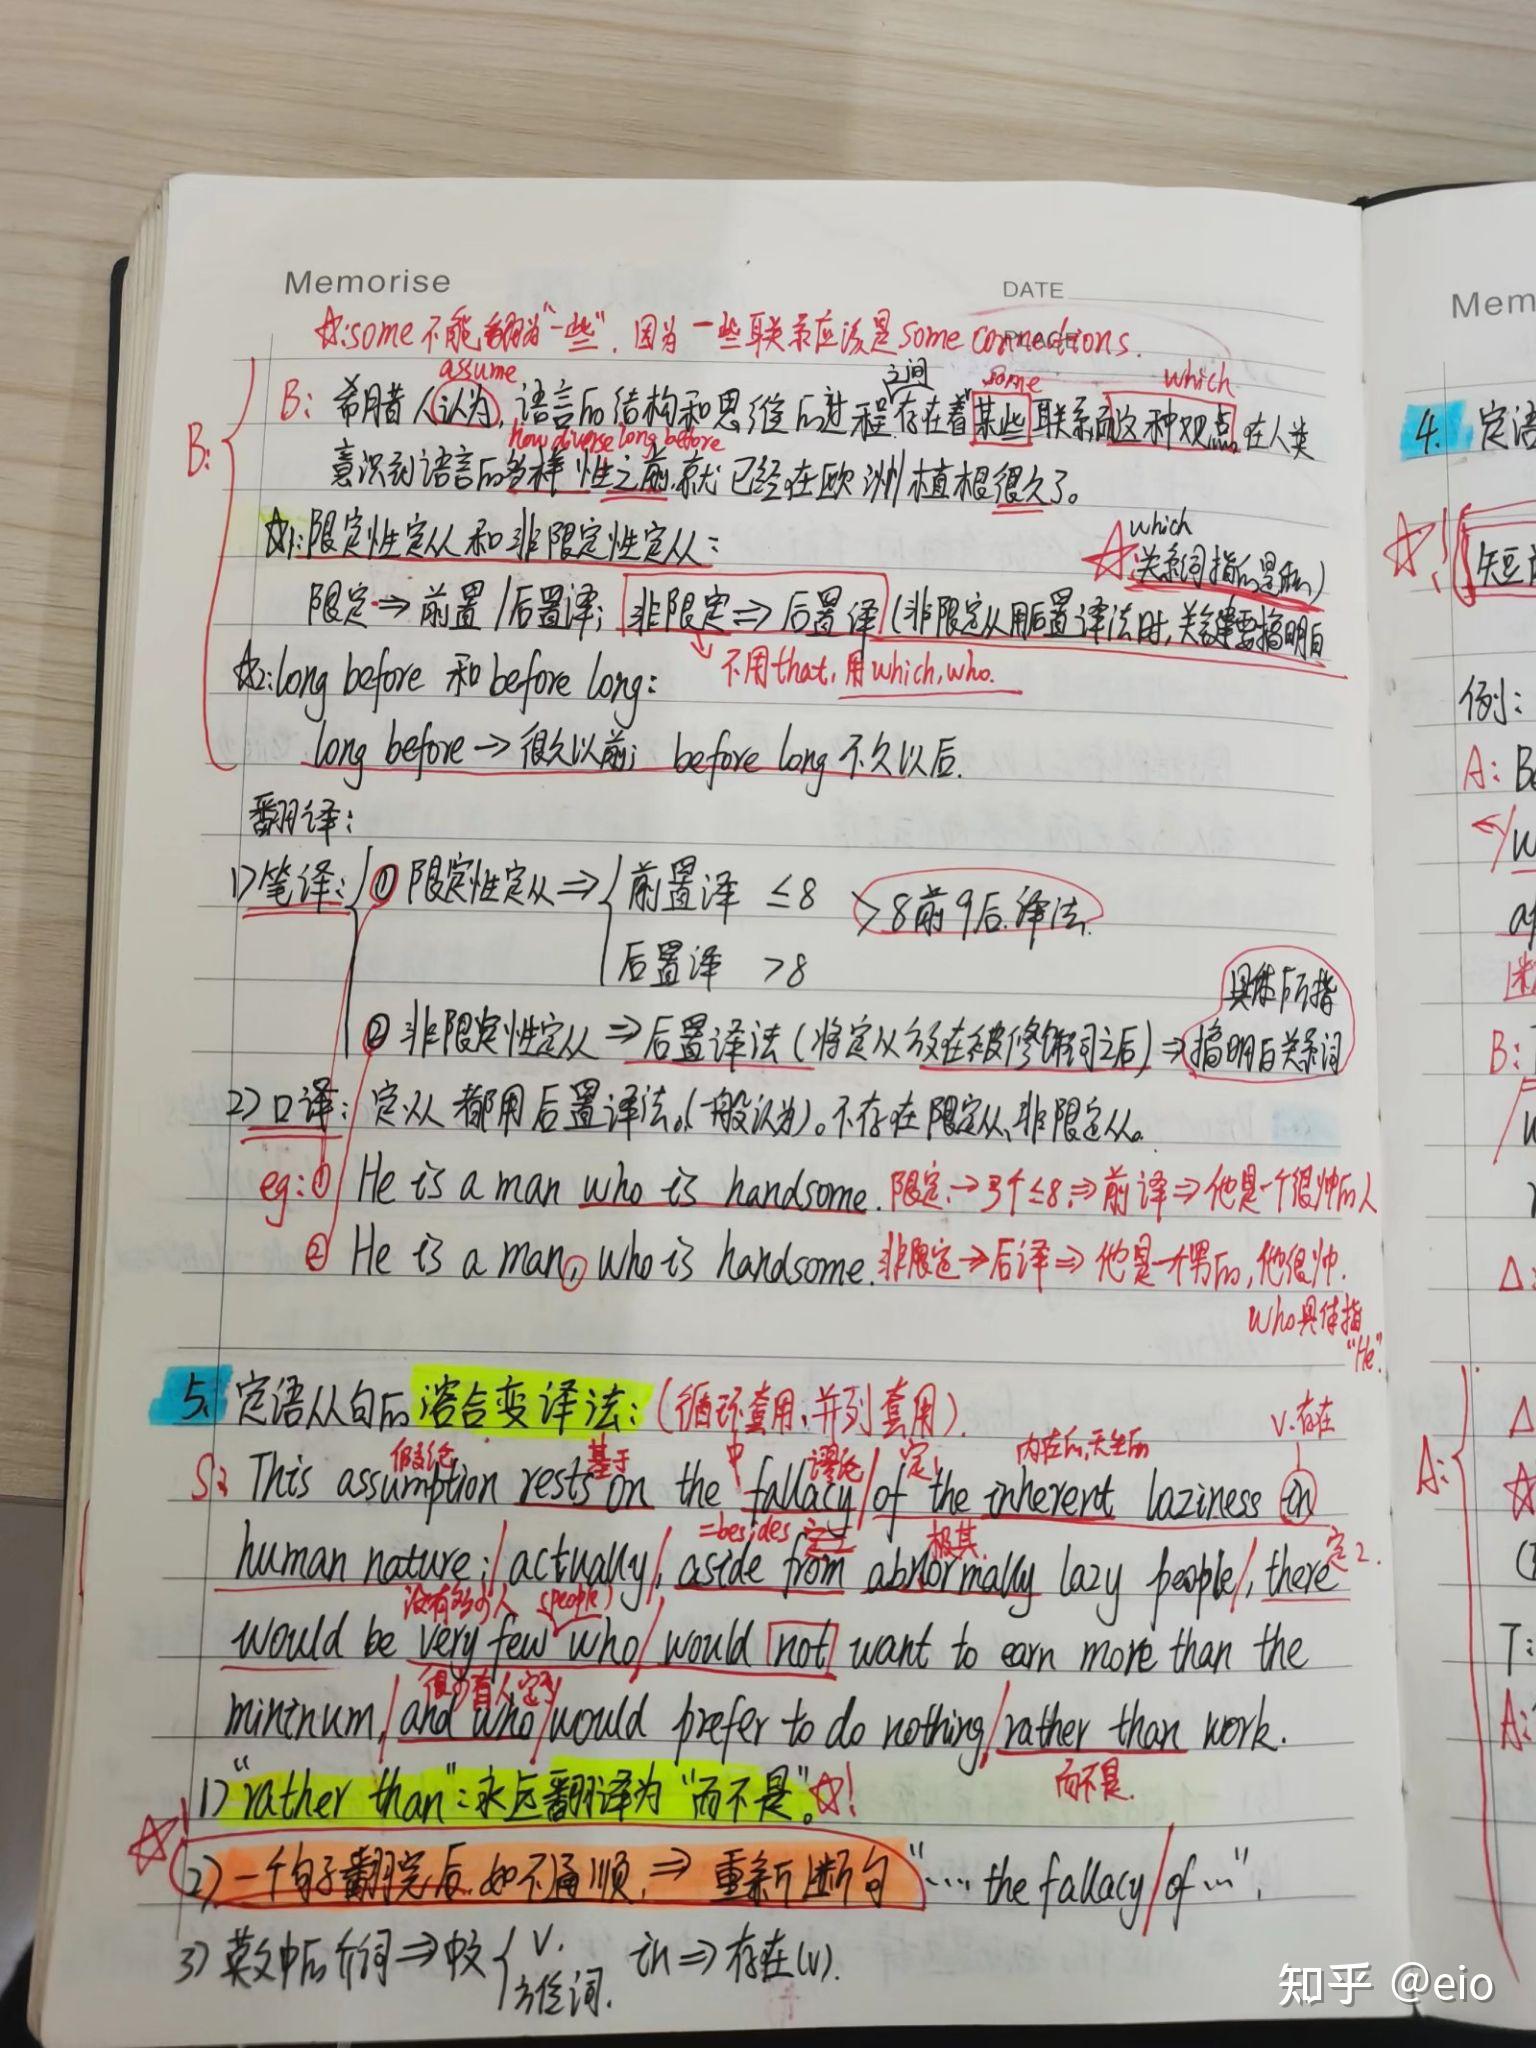 Memorise
DATE
☆:some不能翻为"一些".因为一些联系应该是some connections.
assume 之间 some which
B: B: 希腊人认为,语言的结构和思维的过程存在着某些联系,而这种观点,在人类
How diverse long before
意识到语言的多样性之前,就已经在欧洲植根很久了。
☆1:限定性定从和非限定性定从:
which
☆:关系词指的是和的)
限定⇒前置/后置译; 非限定⇒后置译(非限定从用后置译法时,关键要搞明白
↘不用that,用which,who.
☆2:long before 和 before long:
long before→很久以前; before long 不久以后.
翻译:
1)笔译:①限定性定从⇒前置译 ≤8 >8前9后译法.
后置译 >8
具体所指
②非限定性定从⇒后置译法(将定从放在被修饰词之后)⇒搞明白关系词
2)口译:定从都用后置译法。(一般认为)。不存在限定从、非限定从。
eg:① He is a man who is handsome.限定,→3个≤8,⇒前译⇒他是一个很帅的人
② He is a man, who is handsome.非限定→后译⇒他是一个男的,他很帅.
who具体指
"He".
5. 定语从句的溶合变译法:(循环套用,并列套用).
假设论 基于 中 谬论 定1 内在的,天生的 V.存在
S: This assumption rests on the fallacy/of the inherent laziness in
=besides 定 极其. 定2.
human nature;/actually/,aside from abnormally lazy people/,there
没有多少人 (people)
would be very few who/would not want to earn more than the
很少有人 定
minimum,/and who/would prefer to do nothing/rather than work.
而不是.
1)"rather than":永远翻译为"而不是"。☆!
☆ 2)一个句子翻完后,如不通顺,⇒重新断句"....the fallacy/of...".
3)英文中的介词⇒中文 V. in⇒存在(v).
方位词.
Mem
4. 定语
☆!
例:
A: B
B:
A:
T:
A:
知乎 @eio